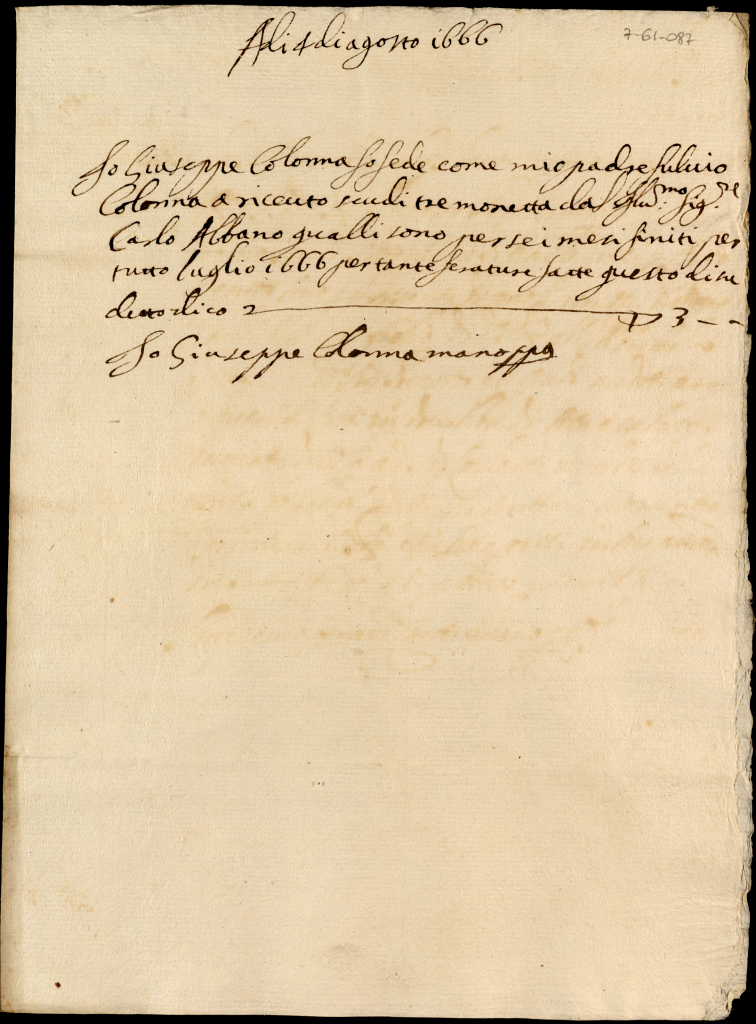 Adi 4 di agosto 1666
7-61-087
Io Giuseppe Colonna fo fede come mio padre fulvio
Colonna a riceuto scudi tre monetta dal Illu.mo Sig.re
Carlo Albano qualli sono per sei mesi finiti per
tutto luglio 1666 per tante ferature fatte questo di su
detto dico 2 — 3 – –
Io Giuseppe Colonna mano ppa